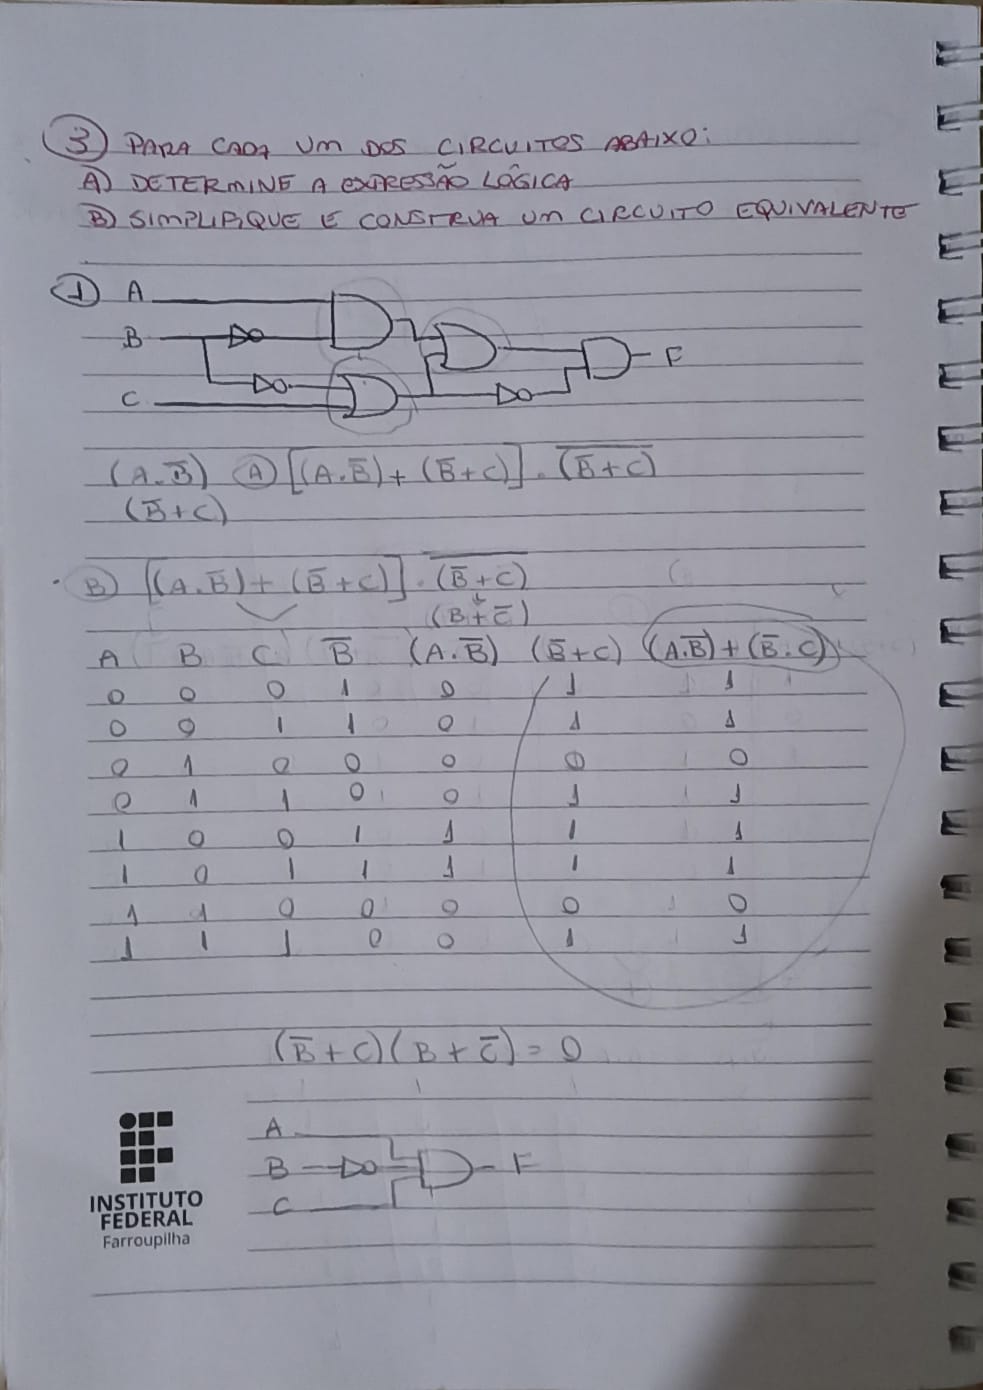 3) PARA CADA UM DOS CIRCUITOS ABAIXO:
A) DETERMINE A EXPRESSÃO LÓGICA
B) SIMPLIFIQUE E CONSTRUA UM CIRCUITO EQUIVALENTE
1) A
B
F
C
(A.B̅) A) [(A.B̅)+(B̅+C)].(B̅+C)̅
(B̅+C)
B) [(A.B̅)+(B̅+C)].(B̅+C)̅
(B+C̅)
A B C B̅ (A.B̅) (B̅+C) (A.B̅)+(B̅.C)
0 0 0 1 0 1 1
0 0 1 1 0 1 1
0 1 0 0 0 0 0
0 1 1 0 0 1 1
1 0 0 1 1 1 1
1 0 1 1 1 1 1
1 1 0 0 0 0 0
1 1 1 0 0 1 1
(B̅+C)(B+C̅)=0
A
B F
C
INSTITUTO
FEDERAL
Farroupilha